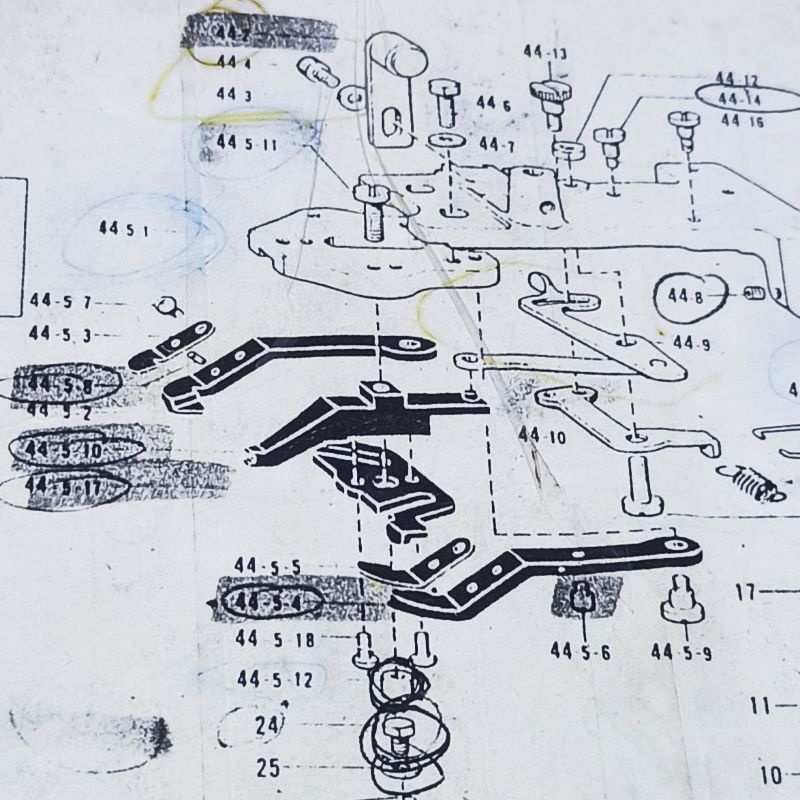 44-2
44 4
44 3
44 5 11
44 5 1
44-13
44 6
44-7
44-12
44-14
44-16
44-8
44-9
44-10
44-5 7
44-5.3
44-5-8
44-5-2
44-5-10
44-5-17
44-5-5
44-5-4
44-5-18
44-5-12
24
25
44-5-6
44-5-9
17
11
10
4